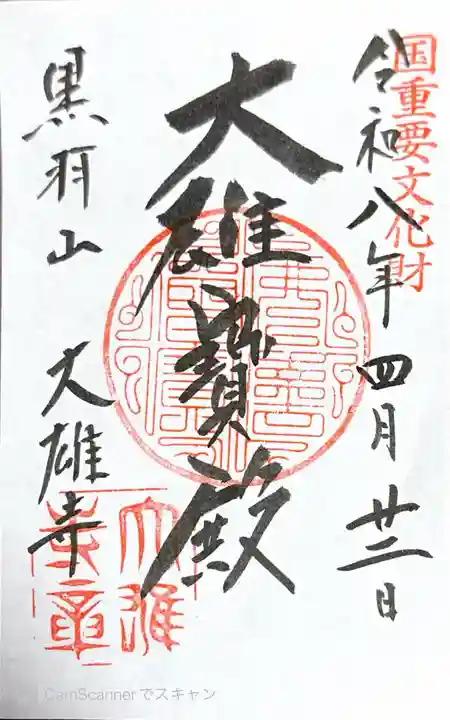 国重要文化財
令和八年四月廿三日
大雄寶殿
黒羽山 大雄寺
大雄寺章
CamScannerでスキャン